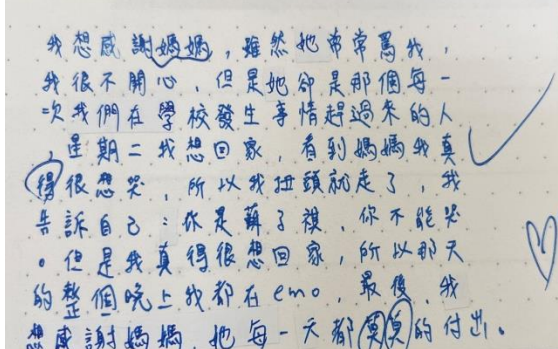 我想感謝媽媽，雖然她常常罵我，
我很不開心，但是她卻是那個每一
次我們在學校發生事情趕過來的人
，星期二我想回家，看到媽媽我真
得很想哭，所以我扭頭就走了，我
告訴自己：你是蘇子祺，你不能哭
。但是我真得很想回家，所以那天
的整個晚上我都在emo，最後，我
想感謝媽媽，她每一天都莫莫的付出。